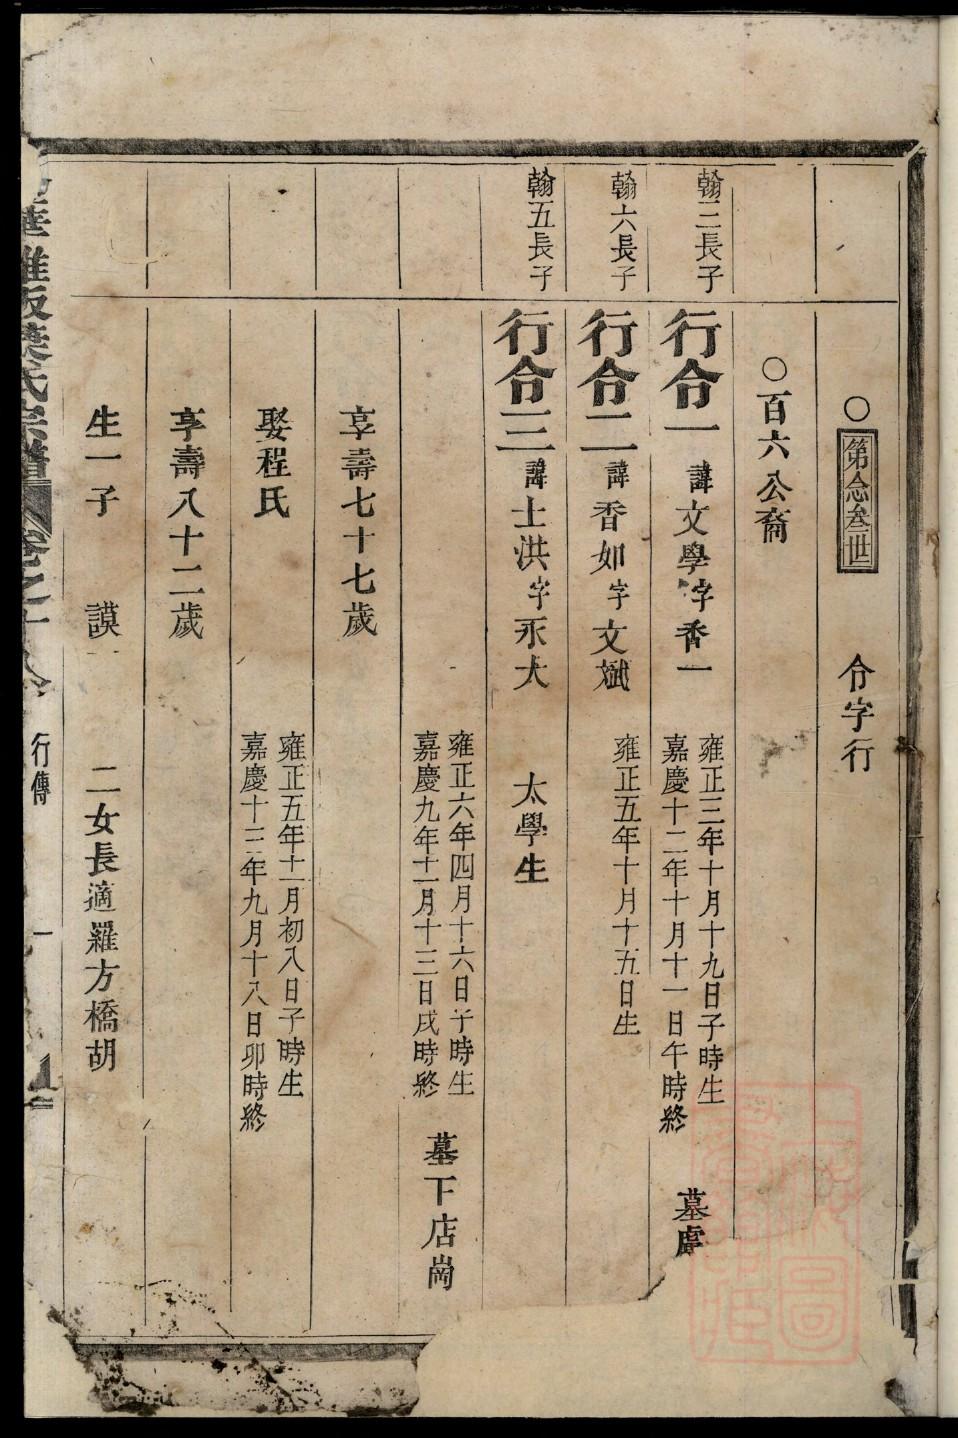 ○第念叁世 令字行
○百六公裔
翰三長子
行令一 諱文學字香一
雍正三年十月十九日子時生
嘉慶十二年十月十一日午時終
墓
翰六長子
行令二 諱香如字文斌
雍正五年十月十五日生
翰五長子
行令三 諱士洪字永大 太學生
雍正六年四月十六日午時生
嘉慶九年十一月十三日戌時終
墓下店崗
享壽七十七歲
娶程氏
雍正五年十一月初八日子時生
嘉慶十三年九月十八日卯時終
享壽八十二歲
生一子 謨一 二女長適羅方橋胡
葉氏宗譜 卷之 行傳 一